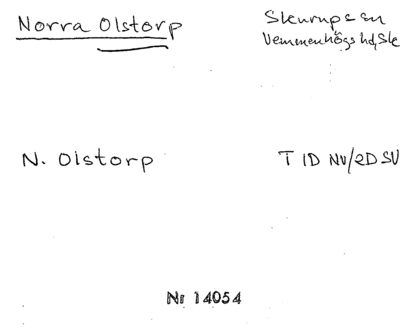 Norra Olstorp
Skurups sn
Vemmenhögs hd, Sk
N. Olstorp
T 1D NV/2D SV
Nr 14054